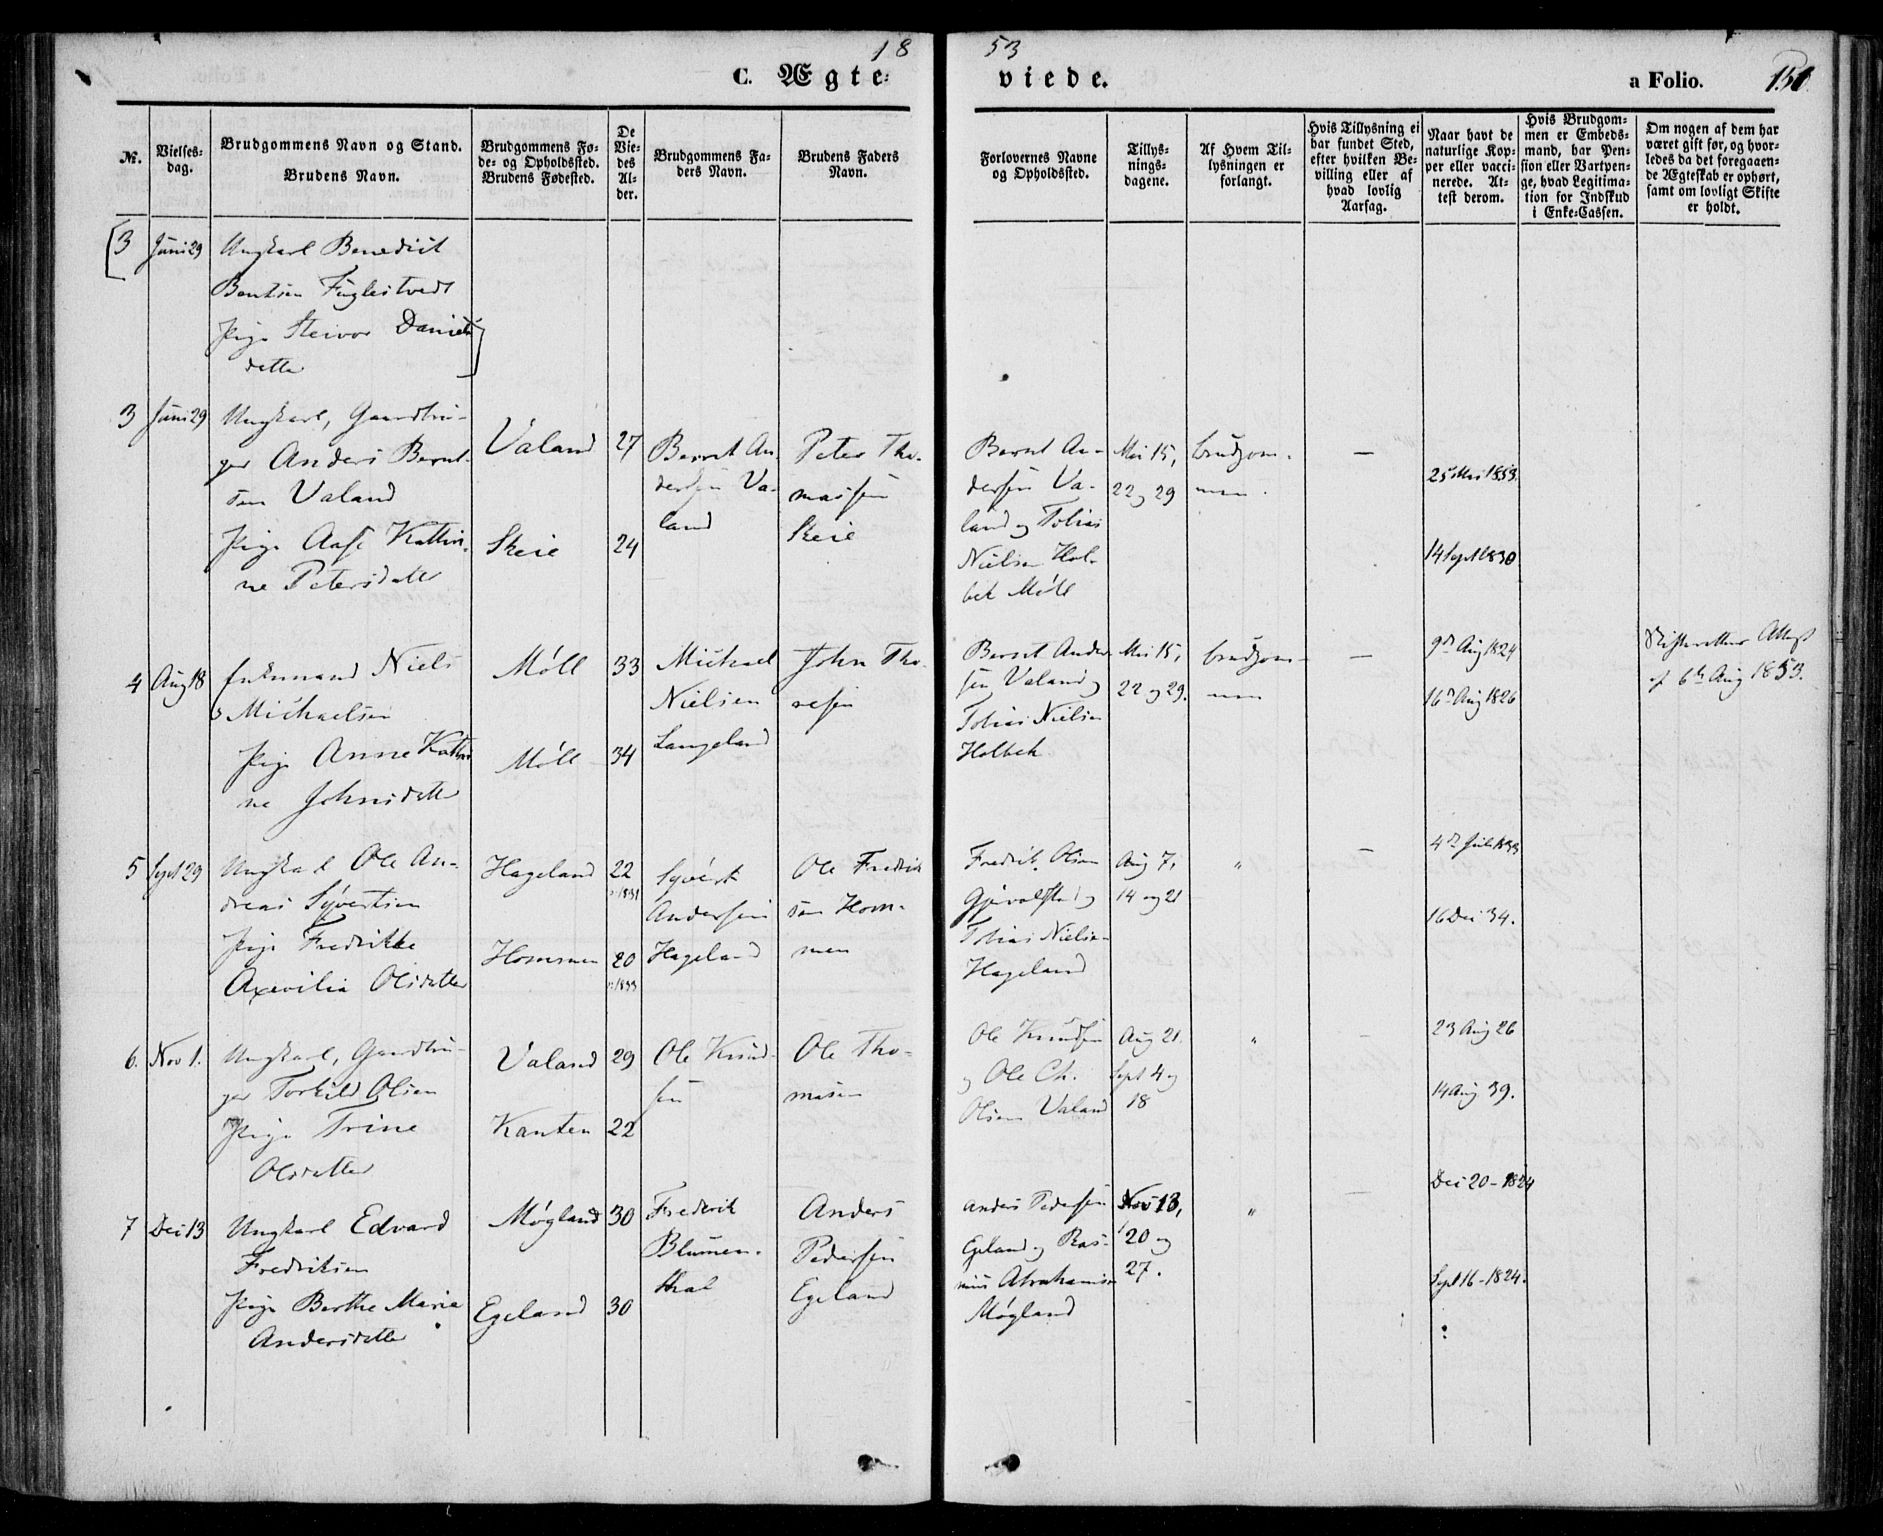 18 53
C. Ægte- viede. a Folio. 151
№.
Vielses-
dag.
Brudgommens Navn og Stand.
Brudens Navn.
Brudgommens Fø-
de- og Opholdssted.
Brudens Fødested.
De
Vie-
des
Al-
der.
Brudgommens Fa-
ders Navn.
Brudens Faders
Navn.
Forlovernes Navne
og Opholdssted.
Tillys-
nings-
dagene.
Af Hvem Til-
lysningen er
forlangt.
Hvis Tillysning ei
har fundet Sted,
efter hvilken Be-
villing eller af
hvad lovlig
Aarsag.
Naar havt de
naturlige Kop-
per eller vacci-
nerede. At-
test derom.
Hvis Brudgom-
men er Embeds-
mand, har Pen-
sion eller Vartpen-
ge, hvad Legitima-
tion for Indskud
i Enke-Cassen.
Om nogen af dem har
været gift før, og hvor-
ledes da det foregaaen-
de Ægteskab er ophørt,
samt om lovligt Skifte
er holdt.
3 Juni 29
Ungkarl Benedict
Bentsen Fuglestvedt
Pige Steivor Daniels
datter
3 Juni 29
Ungkarl, Gaardbru-
ger Anders Bernt-
sen Valand
Pige Aase Kathri-
ne Petersdatter
Valand
Skeie
27
24
Bernt An-
dersen Va-
land
Peter Tho-
massen
Skeie
Bernt An-
dersen Va-
land og Tobias
Nielsen Hol-
bek Møll
Mai 15,
22 og 29
brudgom-
men.
—
25 Mai 1853.
14 Sept 1830
4 Aug 18
Enkemand Niels
Michaelsen
Pige Anne Kathri
ne Johnsdatter
Møll
Møll
33
34
Michael
Nielsen
Langeland
John Tho-
resen
Bernt Ander
sen Valand og
Tobias Nielsen
Holbek
Mai 15,
22 og 29.
brudgom-
men
—
9de Aug 1824
16de Aug 1826
Skifterettens Attest
af 6te Aug 1853.
5 Sept 29
Ungkarl Ole An-
dreas Syvertsen
Pige Fredrikke
Axevilia Olsdatter
Hageland
Hommen
22
1831
20
1833
Syvert
Andersen
Hageland
Ole Fredrik
sen Hom-
men
Fredrik Olsen
Gjervolstad og
Tobias Nielsen
Hageland
Aug 7,
14 og 21
"
—
4de Juli 1833
16 Dec 34.
6. Nov 1.
Ungkarl, Gaardbru-
ger Torkild Olsen
Pige Trine
Olsdatter
Valand
Kanten
29
22
Ole Knud-
sen
Ole Tho-
masen
Ole Knudsen
og Ole Ch.
Olsen Valand
Aug 21.
Sept 4 og
18
"
—
23 Aug 26
14 Aug 39.
7 Dec 13
Ungkarl Edvard
Fredriksen
Pige Berthe Maria
Andersdatter
Møgland
Egeland
30
30
Frederik
Blumen-
thal
Anders
Pedersen
Egeland
Anders Pedersen
Egeland og Ras-
mus Abrahamsen
Møgland
Nov 13,
20 og
27.
"
—
Dec 20 - 1824
Sept 16 - 1824.